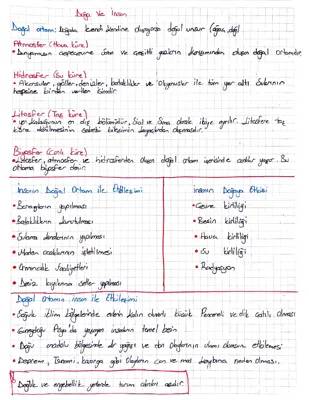 Doğa Ve İnsan
Doğal ortam: Doğada kendi kendine oluşmuş doğal unsur (ağaç, dağ)
Atmosfer (Hava küre)
• Dünyamızın çepeçevre saran ve çeşitli gazların karışımından oluşan doğal ortamdır.
Hidrosfer (Su küre)
• Akarsular, göller, denizler, bataklıklar ve Okyanuslar ile tüm yer altı sularının
hepsine birden verilen isimdir
Litosfer (Taş küre)
• yer kabuğunun en dış bölümüdür, Sial ve Sima olarak ikiye ayrılır. Litosfere taş
küre denilmesinin sebebi bileşiminin kayaçtan oluşmasıdır.
Biyosfer (Canlı küre)
• Litosfer, atmosfer ve hidrosferden oluşan doğal ortam içerisinde canlılar yaşar. Bu
ortama biyosfer denir.
İnsanın Doğal Ortam ile Etkileşimi
• Barajların yapılması
• Bataklıkların kurutulması
• Sulama kanallarının yapılması
• Maden ocaklarının işletilmesi
• Ormancılık faaliyetleri
• Deniz kıyılarına setler yapılması
İnsanın Doğaya Etkisi
• Çevre kirliliği
• Besin kirliliği
• Hava kirliliği
• Su kirliliği
• Radyasyon
Doğal ortamın insan ile Etkileşimi
• Soğuk iklim bölgelerinde evlerin kalın duvarlı küçük Pencereli ve dik çatılı olması
• Güneydoğu Asya'da yaşayan insanların temel besin
• Doğu anadolu bölgesinde kar yağışı ve don olaylarının ulaımı olumsuz etkilemesi
• Deprem, Tsunami, kasırga gibi olayların can ve mal kaybına neden olması.
Dağlık ve engebeli yerlerde tarım alanları azdır.